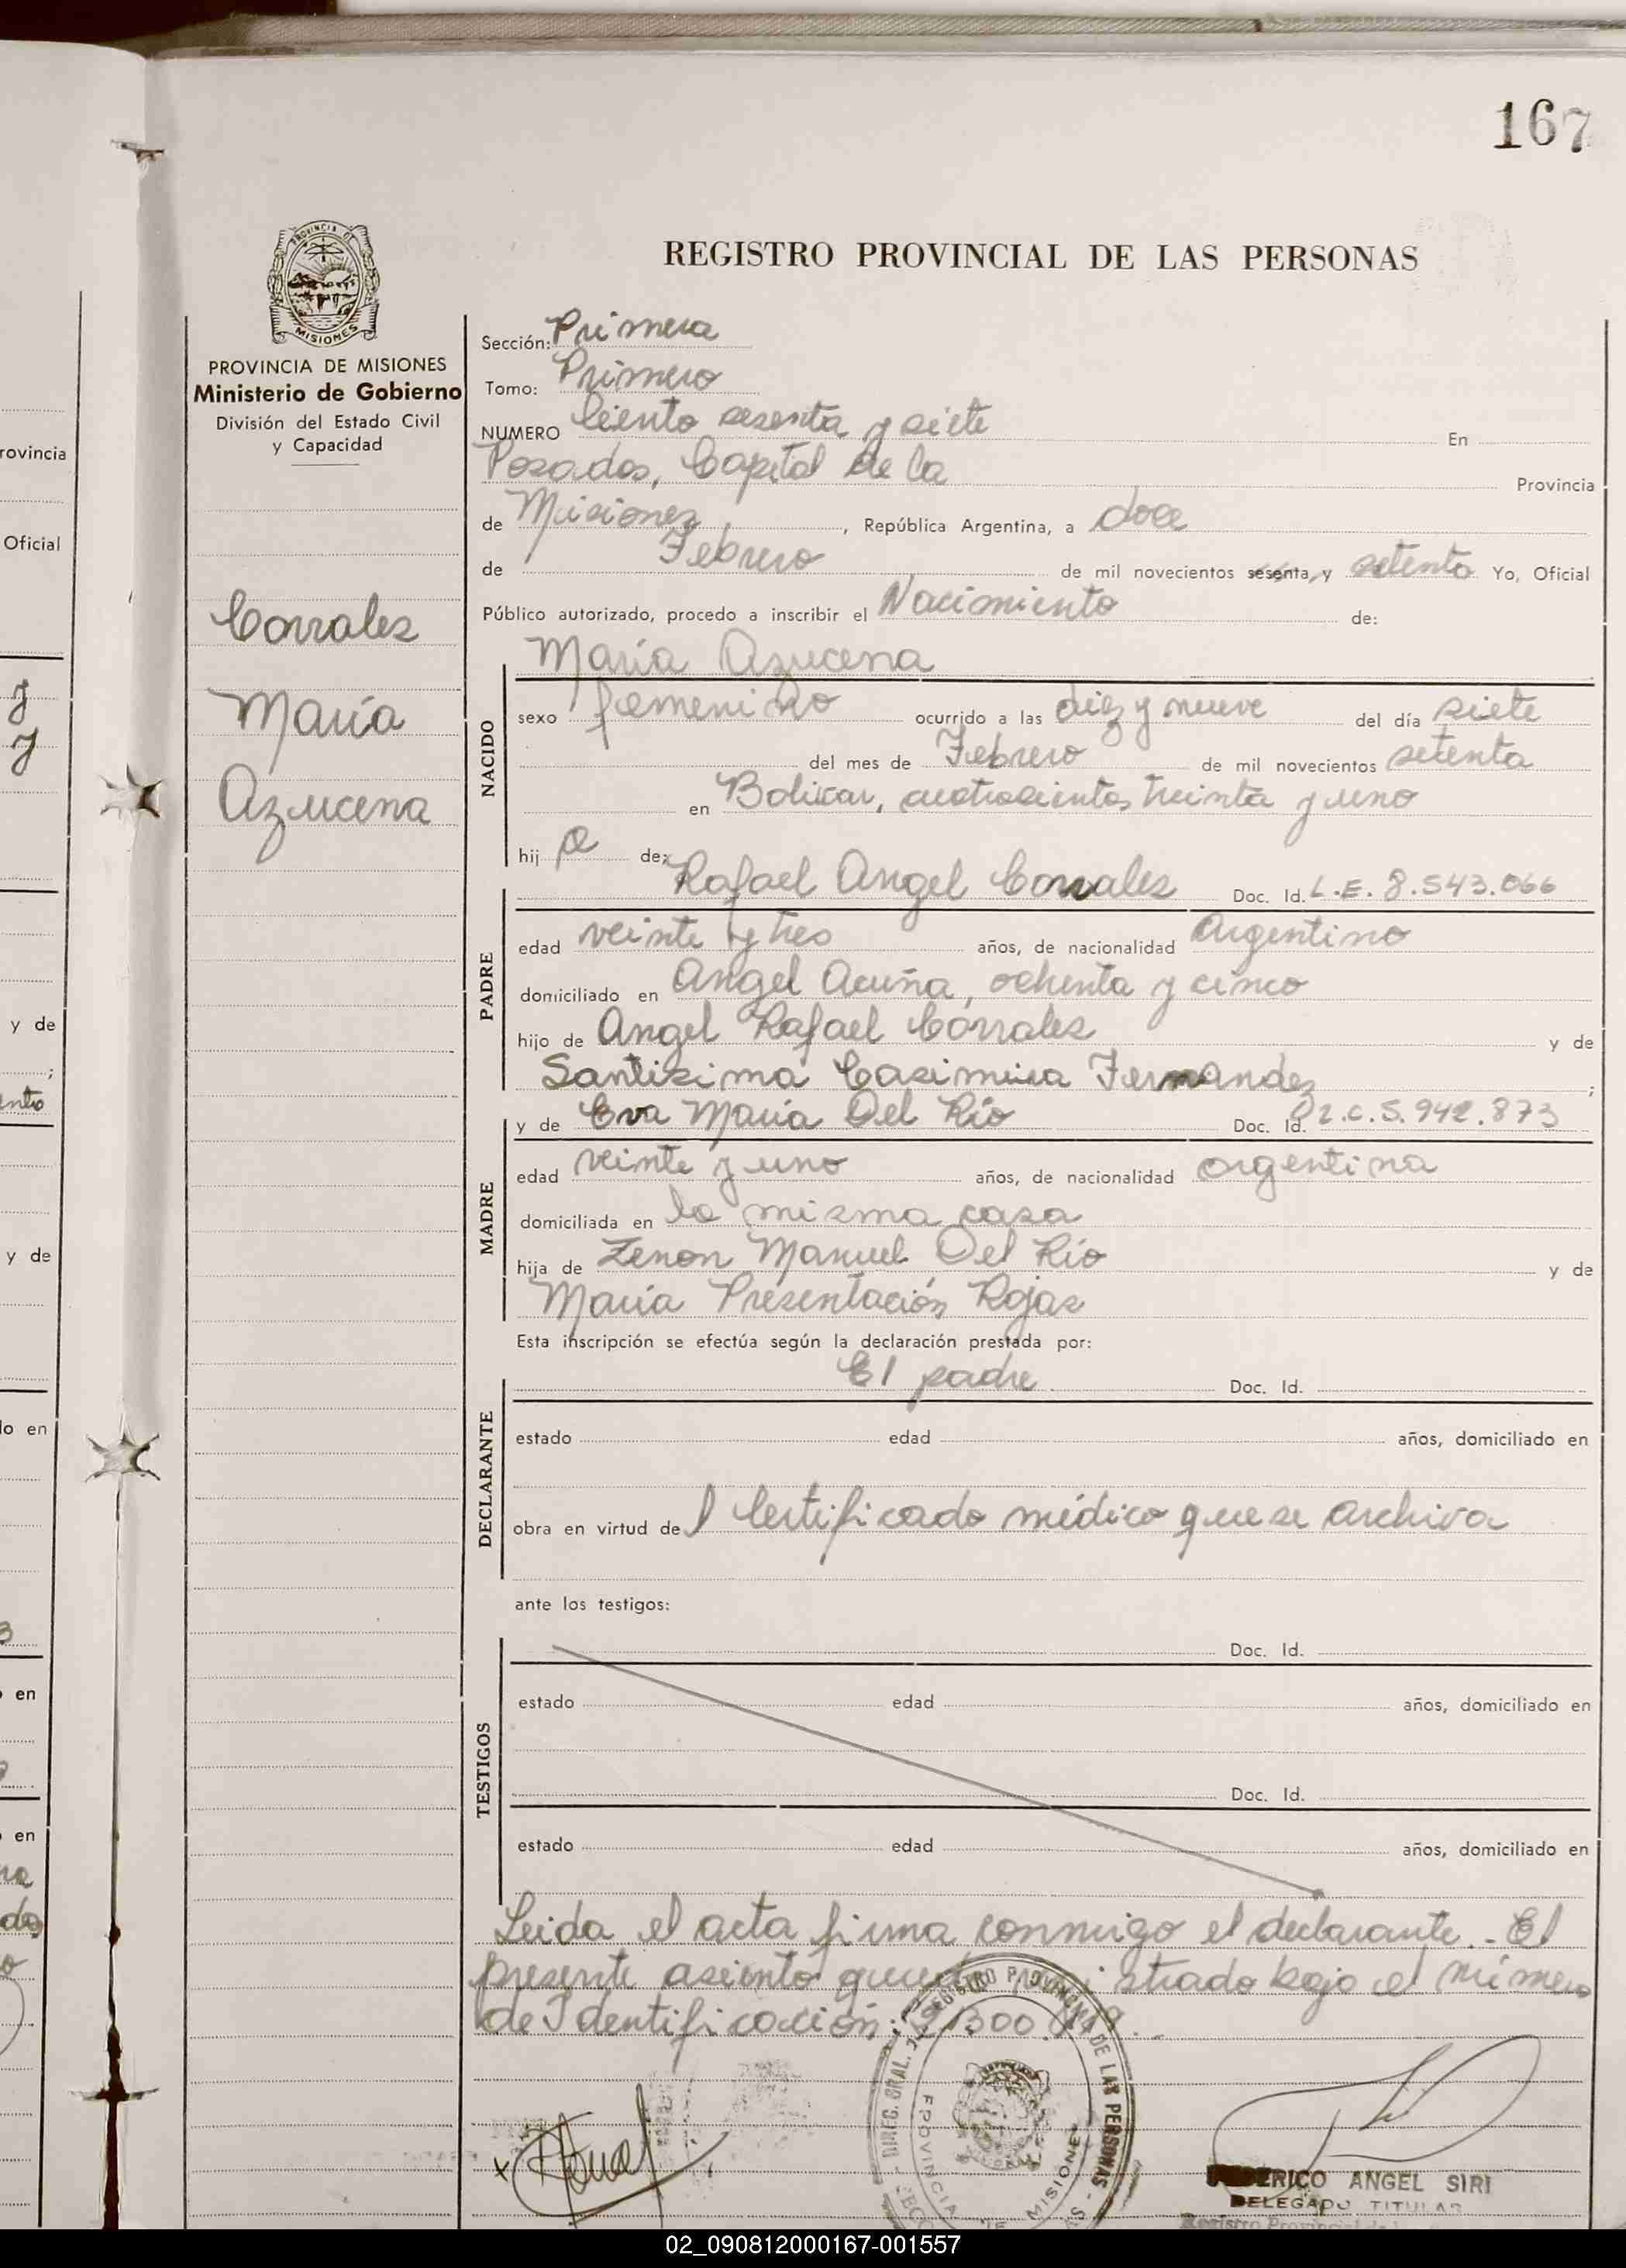 167
REGISTRO PROVINCIAL DE LAS PERSONAS
PROVINCIA DE MISIONES
Ministerio de Gobierno
División del Estado Civil
y Capacidad
Corrales
María
Azucena
Sección: Primera
Tomo: Primero
NUMERO Ciento sesenta y siete En
Posadas, Capital de la Provincia
de Misiones, República Argentina, a doce
de Febrero de mil novecientos sesenta y setenta Yo, Oficial
Público autorizado, procedo a inscribir el Nacimiento de:
María Azucena
NACIDO
sexo femenino ocurrido a las diez y nueve del día siete
del mes de Febrero de mil novecientos setenta
en Bolivar, cuatrocientos treinta y uno
hij a de:
Rafael Angel Corrales Doc. Id. L.E. 8.543.066
PADRE
edad veinte y tres años, de nacionalidad Argentino
domiciliado en Angel Acuña, ochenta y cinco
hijo de Angel Rafael Corrales y de
Santisima Casimira Fernandez;
y de Eva María Del Río Doc. Id. L.C. 5.942.873
MADRE
edad veinte y uno años, de nacionalidad argentina
domiciliada en la misma casa
hija de Zenon Manuel Del Río y de
María Presentación Rojas
Esta inscripción se efectúa según la declaración prestada por:
El padre Doc. Id.
DECLARANTE
estado edad años, domiciliado en
obra en virtud del Certificado médico que se archiva
ante los testigos:
TESTIGOS
Doc. Id.
estado edad años, domiciliado en
Doc. Id.
estado edad años, domiciliado en
Leida el acta firma conmigo el declarante.- El
presente asiento bajo el número
de Identificación:
REGISTRO PROVINCIAL DE LAS PERSONAS
DIREC. GRAL.
PROVINCIA DE MISIONES
FEDERICO ANGEL SIRI
DELEGADO TITULAR
02_090812000167-001557